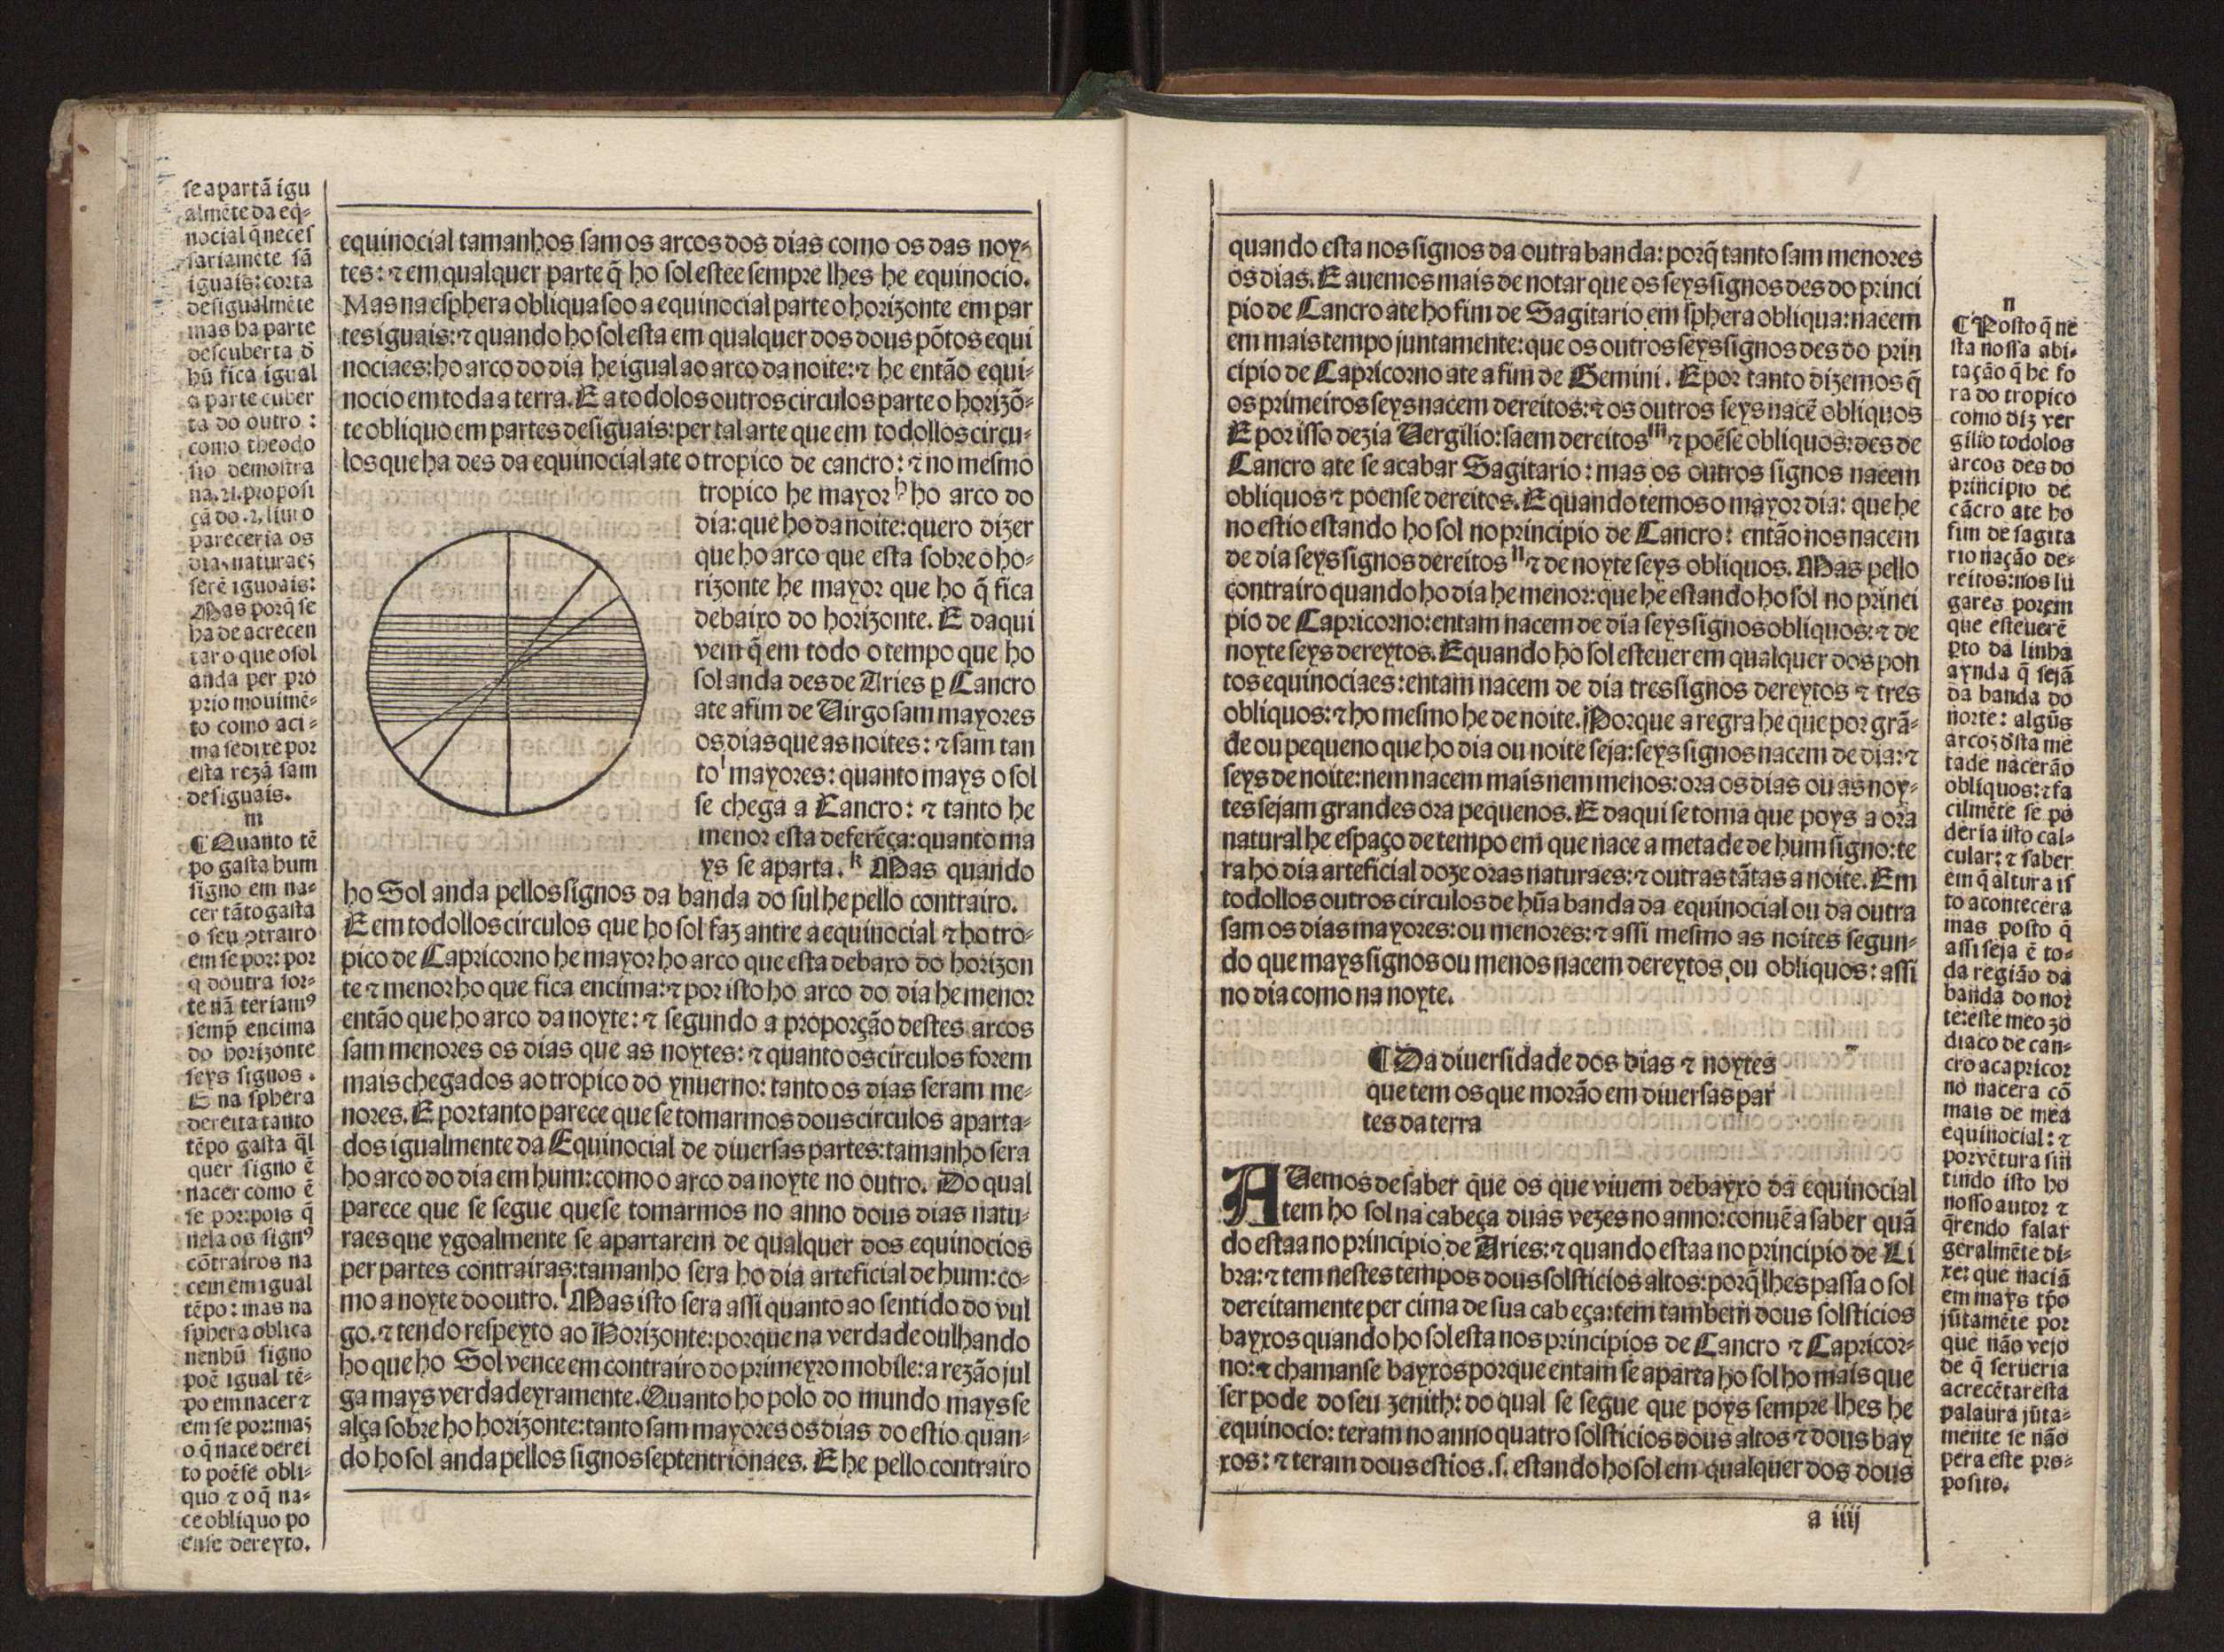 se apartã igu
almẽte da eq̃-
nocial q̃ neces
sariamẽte sã
iguais: corta
desigualmẽte
mas ha parte
descuberta d̃
hũ fica igual
a parte cuber
ta do outro:
como theodo
sio demostra
na.21.proposi
çã do.2.liuro
pareceria os
dias naturaes
serẽ iguoais:
Mas porq̃ se
ha de acrecen
tar o que o sol
anda per pro
prio mouimẽ-
to como aci-
ma se dixe por
esta rezã sam
desiguais.
m
¶ Quanto tẽ
po gasta hum
signo em na-
cer tãto gasta
o seu ꝯtrairo
em se por: por
q̃ doutra sor-
te nã teriamꝰ
semp̃ encima
do horizonte
seys signos.
E na sphera
dereita tanto
tẽpo gasta q̃l
quer signo ẽ
nacer como ẽ
se por: pois q̃
nela os signꝰ
cõtrairos na
cem em igual
tẽpo: mas na
sphera oblica
nenhũ signo
poẽ igual tẽ-
po em nacer ⁊
em se por: mas
o q̃ nace derei
to poẽse obli-
quo ⁊ o q̃ na-
ce obliquo po
ense dereyto.
equinocial tamanhos sam os arcos dos dias como os das noy-
tes: ⁊ em qualquer parte q̃ ho sol estee sempre lhes he equinocio.
Mas na esphera obliqua soo a equinocial parte o horizonte em par
tes iguais: ⁊ quando ho sol esta em qualquer dos dous põtos equi
nociaes: ho arco do dia he igual ao arco da noite: ⁊ he então equi-
nocio em toda a terra. E a todolos outros circulos parte o horizõ-
te obliquo em partes desiguais: per tal arte que em todollos circu-
los que ha des da equinocial ate o tropico de cancro: ⁊ no mesmo
tropico he mayor h ho arco do
dia: que ho da noite: quero dizer
que ho arco que esta sobre o ho-
rizonte he mayor que ho q̃ fica
debaixo do horizonte. E daqui
vem q̃ em todo o tempo que ho
sol anda des de Aries ꝑ Cancro
ate a fim de Virgo sam mayores
os dias que as noites: ⁊ sam tan
to i mayores: quanto mays o sol
se chega a Cancro: ⁊ tanto he
menor esta deferẽça: quanto ma
ys se aparta. k Mas quando
ho Sol anda pellos signos da banda do sul he pello contrairo.
E em todollos circulos que ho sol faz antre a equinocial ⁊ ho tro-
pico de Capricorno he mayor ho arco que esta debaxo do horizon
te ⁊ menor ho que fica encima: ⁊ por isto ho arco do dia he menor
então que ho arco da noyte: ⁊ segundo a proporção destes arcos
sam menores os dias que as noytes: ⁊ quanto os circulos forem
mais chegados ao tropico do ynuerno: tanto os dias seram me-
nores. E por tanto parece que se tomarmos dous circulos aparta-
dos igualmente da Equinocial de diuersas partes: tamanho sera
ho arco do dia em hum: como o arco da noyte no outro. Do qual
parece que se segue que se tomarmos no anno dous dias natu-
raes que ygoalmente se apartarem de qualquer dos equinocios
per partes contrairas: tamanho sera ho dia arteficial de hum: co-
mo a noyte do outro. l Mas isto sera assi quanto ao sentido do vul
go. ⁊ tendo respeyto ao Horizonte: porque na verdade oulhando
ho que ho Sol vence em contrairo do primeyro mobile: a rezão jul
ga mays verdadeyramente. Quanto ho polo do mundo mays se
alça sobre ho horizonte: tanto sam mayores os dias do estio quan-
do ho sol anda pellos signos septentrionaes. E he pello contrairo
quando esta nos signos da outra banda: porq̃ tanto sam menores
os dias. E auemos mais de notar que os seys signos des do princi
pio de Cancro ate ho fim de Sagitario em sphera obliqua: nacem
em mais tempo juntamente: que os outros seys signos des do prin
cipio de Capricorno ate a fim de Gemini. E por tanto dizemos q̃
os primeiros seys nacem dereitos: ⁊ os outros seys nacẽ obliquos
E por isso dezia Vergilio: saem dereitos m ⁊ poẽse obliquos: des de
Cancro ate se acabar Sagitario: mas os outros signos nacem
obliquos ⁊ poense dereitos. E quando temos o mayor dia: que he
no estio estando ho sol no principio de Cancro: então nos nacem
de dia seys signos dereitos n ⁊ de noyte seys obliquos. Mas pello
contrairo quando ho dia he menor: que he estando ho sol no princi
pio de Capricorno: entam nacem de dia seys signos obliquos: ⁊ de
noyte seys dereytos. E quando ho sol esteuer em qualquer dos pon
tos equinociaes: entam nacem de dia tres signos dereytos ⁊ tres
obliquos: ⁊ ho mesmo he de noite. Porque a regra he que por grã-
de ou pequeno que ho dia ou noite seja: seys signos nacem de dia: ⁊
seys de noite: nem nacem mais nem menos: ora os dias ou as noy-
tes sejam grandes ora pequenos. E daqui se toma que poys a ora
natural he espaço de tempo em que nace a metade de hum signo: te
ra ho dia arteficial doze oras naturaes: ⁊ outras tãtas a noite. Em
todollos outros circulos de hũa banda da equinocial ou da outra
sam os dias mayores: ou menores: ⁊ assi mesmo as noites segun-
do que mays signos ou menos nacem dereytos, ou obliquos: assi
no dia como na noyte.
¶ Da diuersidade dos dias ⁊ noytes
que tem os que morão em diuersas par
tes da terra
AVemos de saber que os que viuem debayxo da equinocial
tem ho sol na cabeça duas vezes no anno: conuẽ a saber quã
do estaa no principio de Aries: ⁊ quando estaa no principio de Li
bra: ⁊ tem nestes tempos dous solsticios altos: porq̃ lhes passa o sol
dereitamente per cima de sua cabeça: tem tambem dous solsticios
bayxos quando ho sol esta nos principios de Cancro ⁊ Capricor-
no: ⁊ chamanse bayxos porque entam se aparta ho sol ho mais que
ser pode do seu zenith: do qual se segue que poys sempre lhes he
equinocio: teram no anno quatro solsticios dous altos ⁊ dous bay
xos: ⁊ teram dous estios. s. estando ho sol em qualquer dos dous
a iiij
n
¶ Posto q̃ ne
sta nossa abi-
tação q̃ he fo
ra do tropico
como diz ver
gilio todolos
arcos des do
principio de
cãcro ate ho
fim de sagita
rio nação de-
reitos: nos lu
gares porem
que esteuerẽ
ꝑto da linha
aynda q̃ sejã
da banda do
norte: algũs
arcos d̃sta me
tade nacerão
obliquos: ⁊ fa
cilmẽte se po
deria isto cal-
cular: ⁊ saber
em q̃ altura is
to acontecera
mas posto q̃
assi seja ẽ to-
da região da
banda do nor
te: este meo zo
diaco de can-
cro a capricor
no nacera cõ
mais de mea
equinocial: ⁊
por vẽtura sin
tindo isto ho
nosso autor ⁊
q̃rendo falar
geralmẽte di-
xe: que naciã
em mays tp̃o
jũtamẽte por
que não vejo
de q̃ serueria
acrecẽtar esta
palaura jũta-
mente se não
pera este pro-
posito.